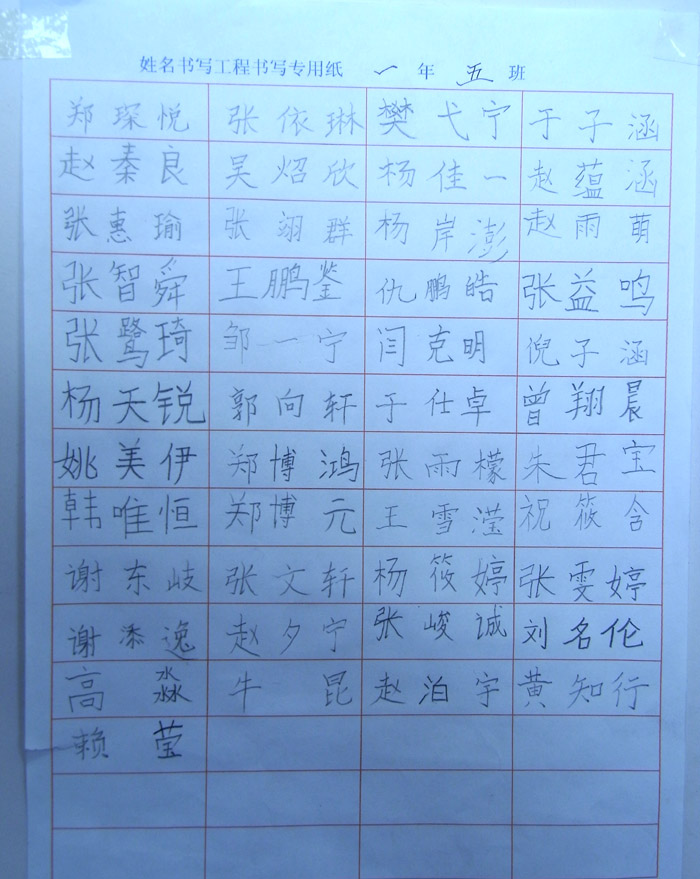 姓名书写工程书写专用纸 一 年 五 班
郑琛悦 张依琳 樊弋宁 于子涵
赵秦良 吴炤欣 杨佳一 赵蕴涵
张惠瑜 张翊群 杨岸澎 赵雨萌
张智舜 王鹏鉴 仇鹏皓 张益鸣
张鹭琦 邹一宁 闫克明 倪子涵
杨天锐 郭向轩 于仕卓 曾翔晨
姚美伊 郑博鸿 张雨檬 朱君宝
韩唯恒 郑博元 王雪滢 祝筱含
谢东岐 张文轩 杨筱婷 张雯婷
谢添逸 赵夕宁 张峻诚 刘名伦
高淼 牛昆 赵泊宇 黄知行
赖莹